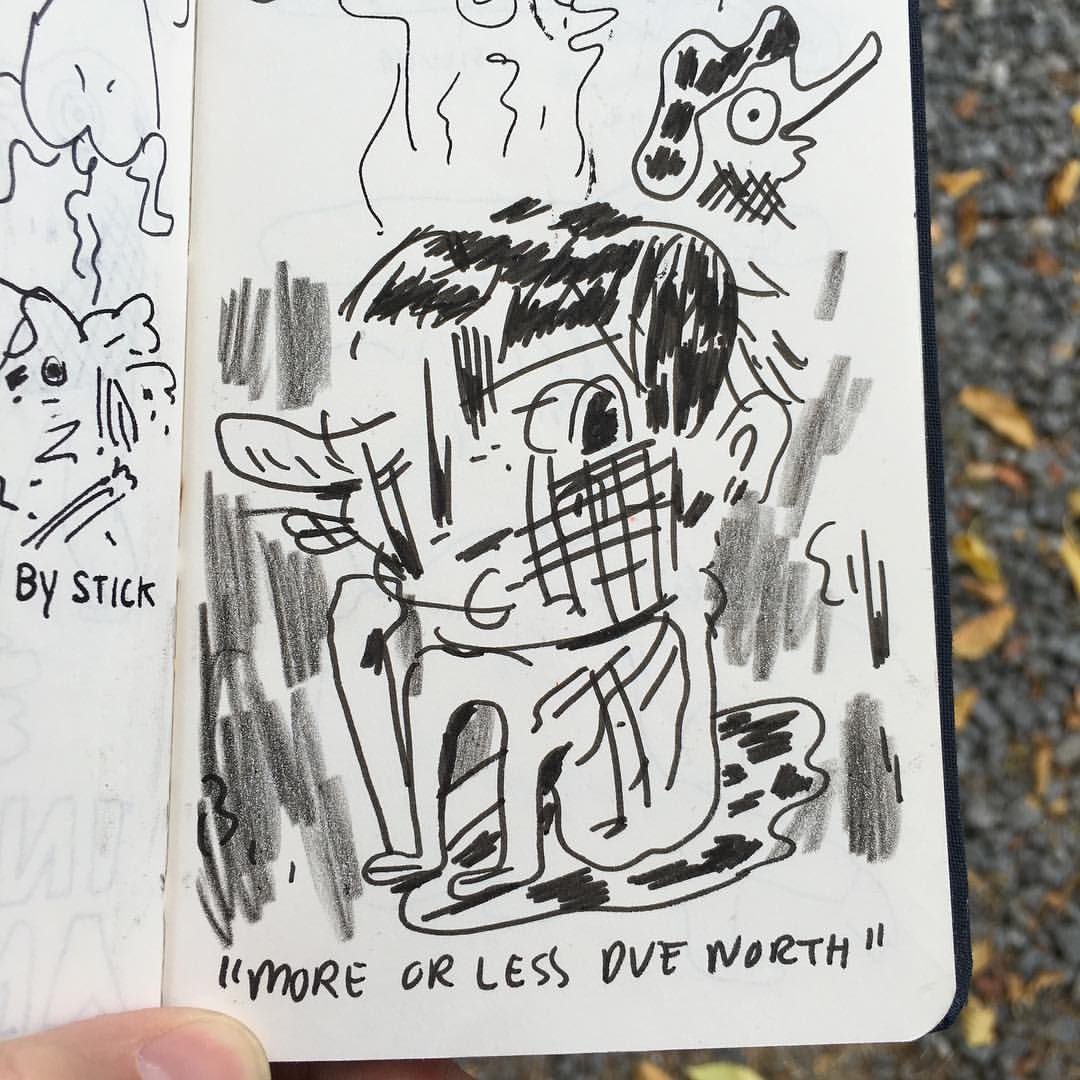 BY STICK
"MORE OR LESS DUE NORTH"